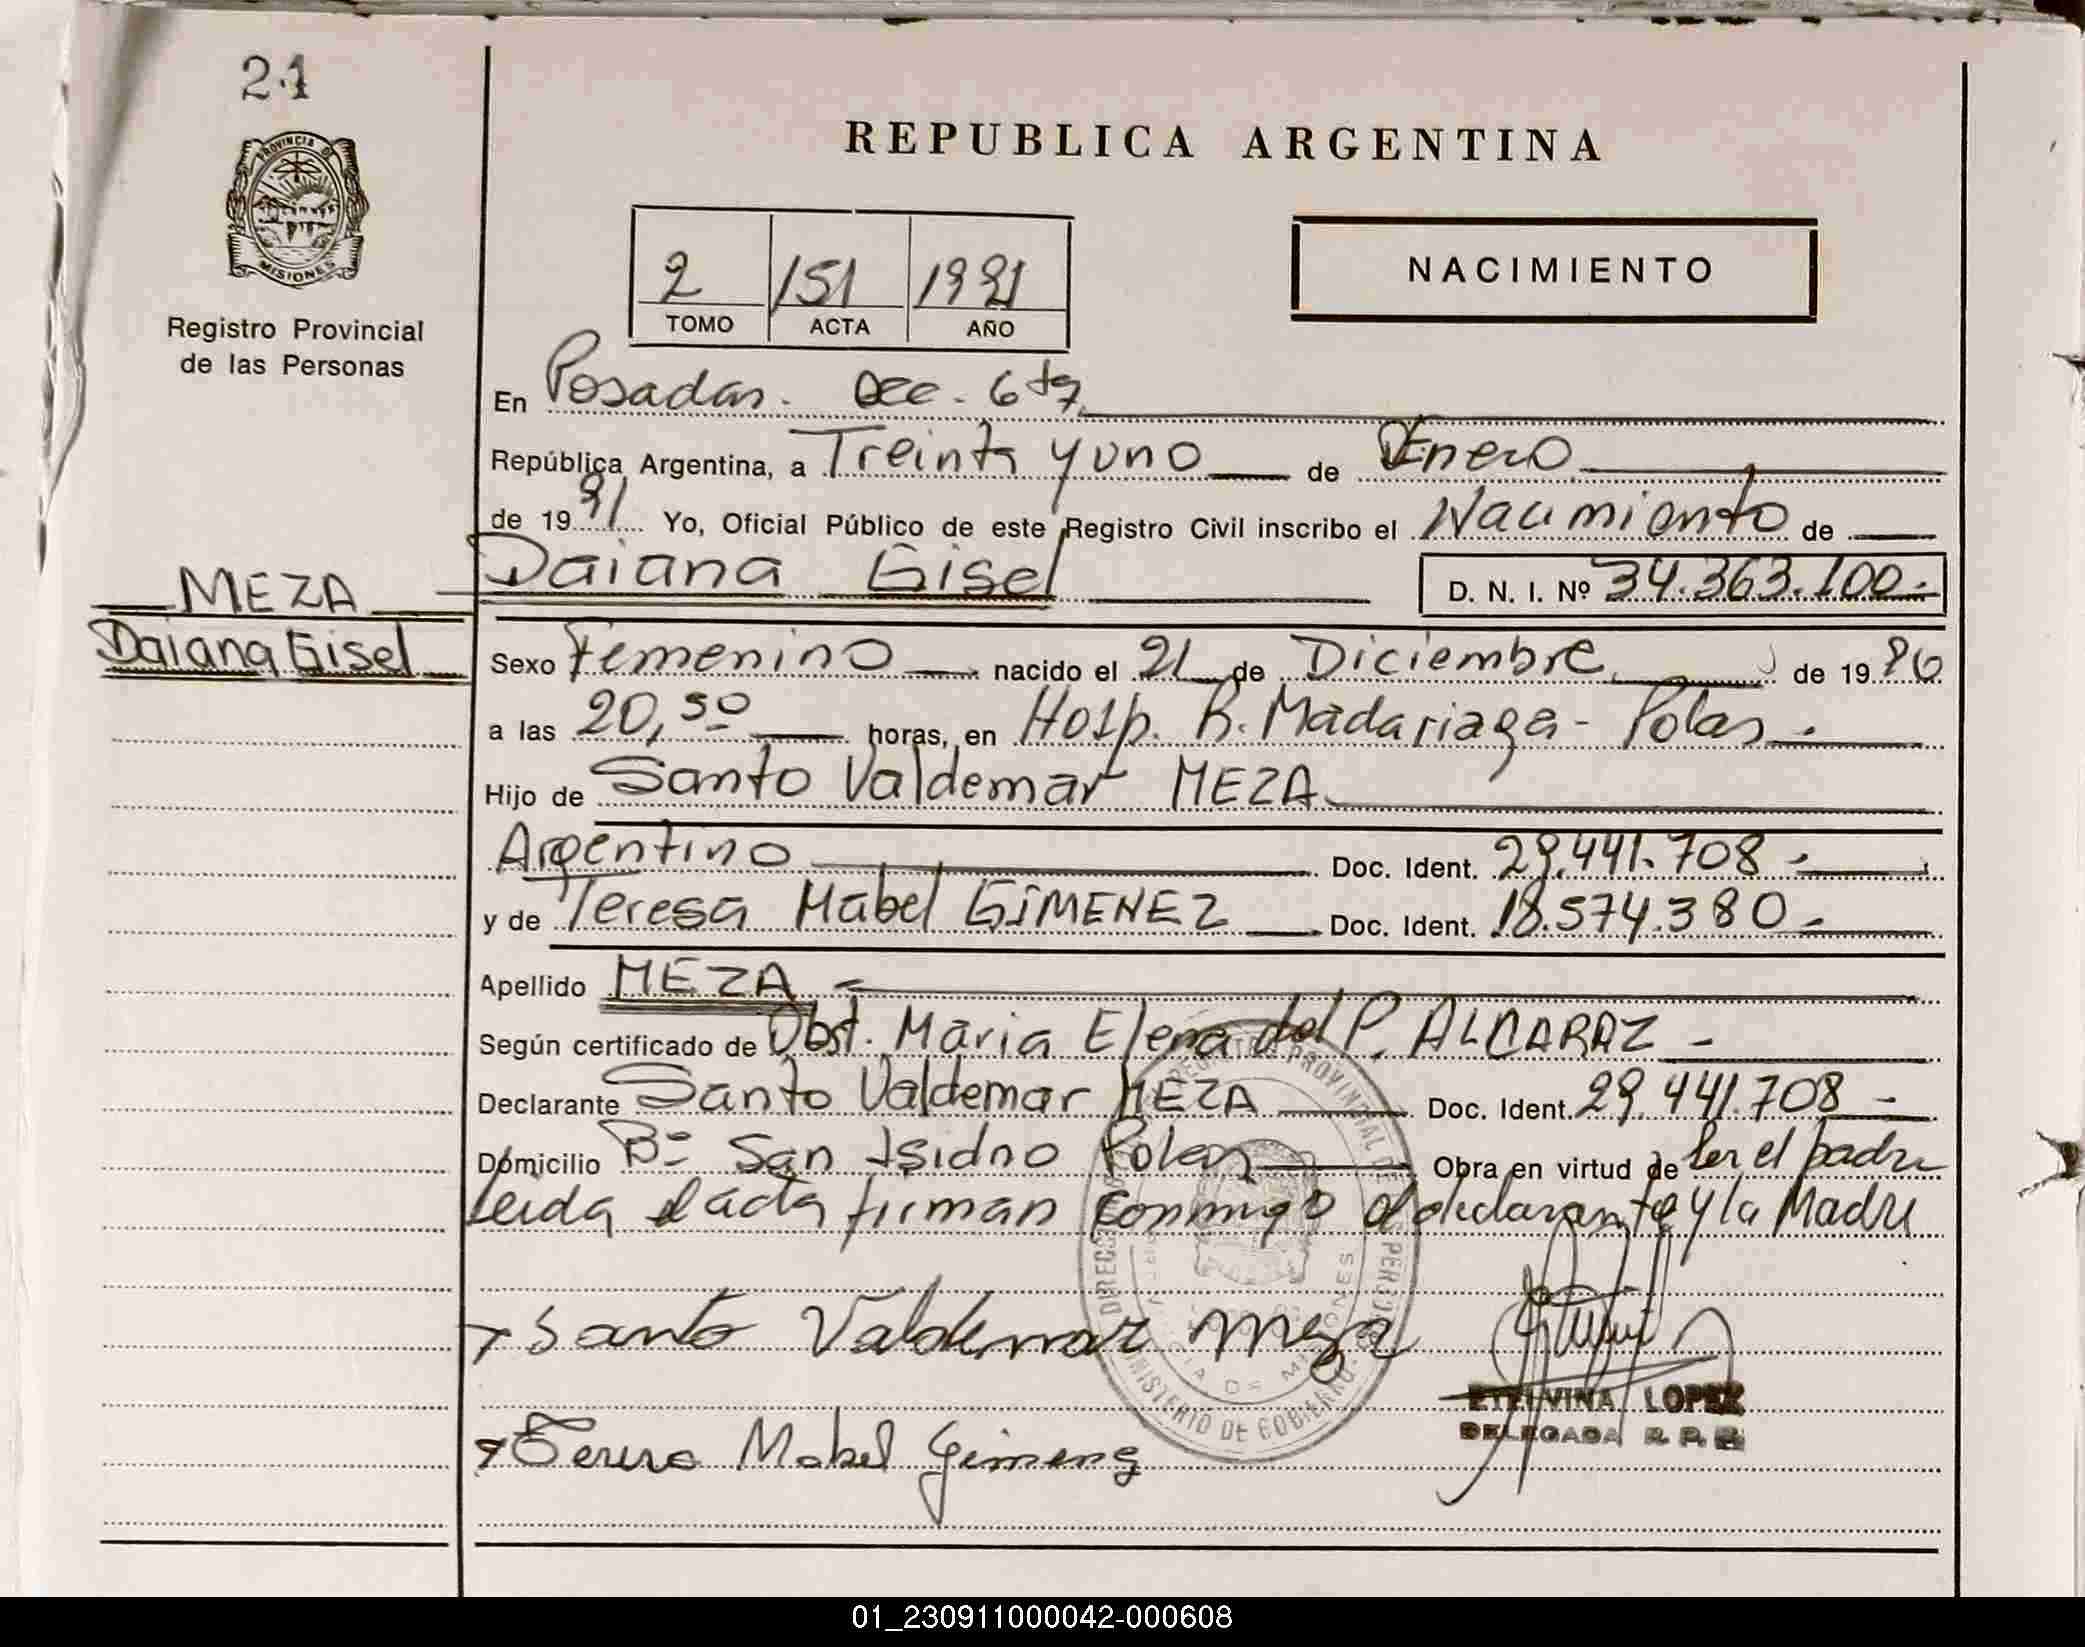 21
PROVINCIA DE
MISIONES
Registro Provincial
de las Personas
REPUBLICA ARGENTINA
2 151 1991
TOMO ACTA AÑO
NACIMIENTO
En Posadas.
República Argentina, a Treinta y uno de Enero
de 1991 Yo, Oficial Público de este Registro Civil inscribo el Nacimiento de
MEZA
Daiana Gisel
Daiana Gisel D. N. I. Nº 34.363.100.-
Sexo Femenino nacido el 21 de Diciembre de 19
a las 20,50 horas, en Hosp. R. Madariaga -
Hijo de Santo Valdemar MEZA
Argentino Doc. Ident. 29.441.708 -
y de Teresa Mabel GIMENEZ Doc. Ident. 18.574.380 -
Apellido MEZA -
Según certificado de Obst. Maria Elena del P. ALCARAZ -
Declarante Santo Valdemar MEZA Doc. Ident. 29.441.708 -
Domicilio Bº San Isidro Obra en virtud de ser el padre
Leida el acta firman conmigo el declarante y la Madre
Santo Valdemar Meza
ETELVINA LOPEZ
DELEGADA R. P. P.
Teresa Mabel Gimenez
DIRECCION REGISTRO PROVINCIAL DE LAS PERSONAS
MINISTERIO DE GOBIERNO
PROVINCIA DE MISIONES
01_230911000042-000608